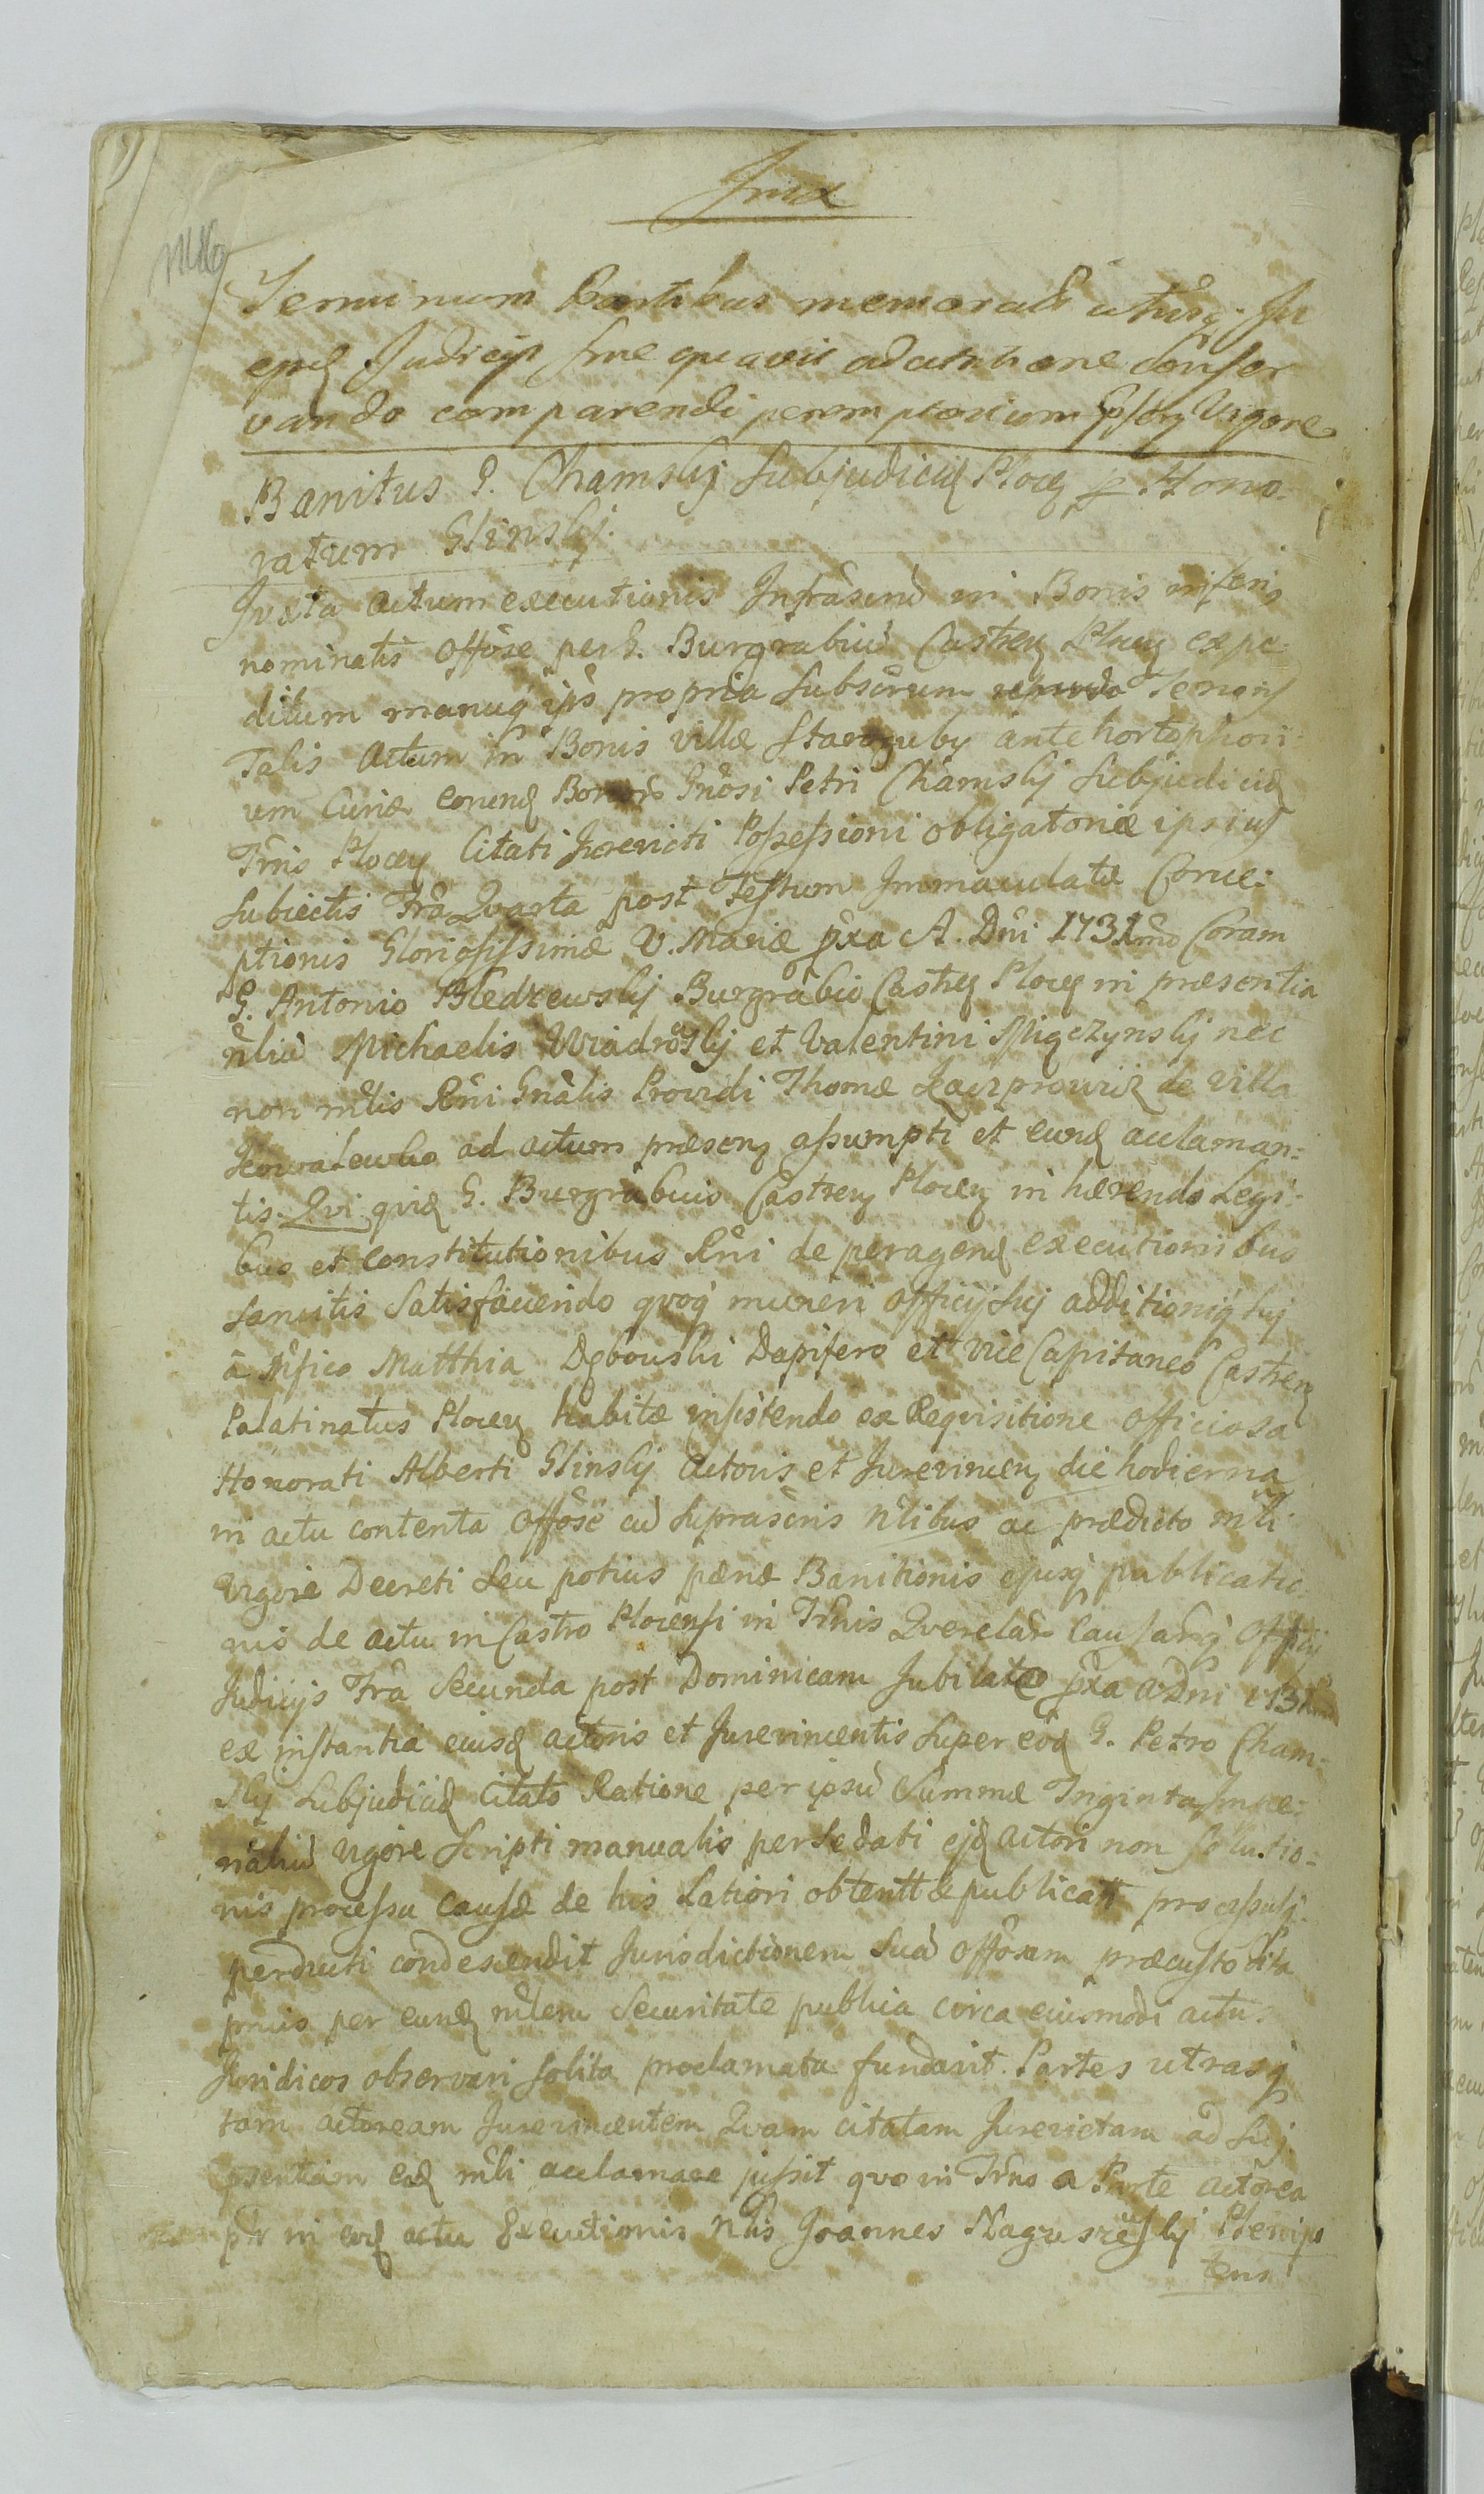 Terminum Partibus memoratis utrisq. In
ejusd Judicijs sine quavis adcitatione conser
vando comparendi peremptorium Ipsorg Vigore
Banitus G. Chamskj Subjudicis Plocen p. Hono.
ratum Glinskj.
Juxta actum executionis Infrascrũ in Bonis inferis
nominatis offõse per G. Burgrabiũ Castren Plocen expe-
ditum manuq ips propria Subscrum Tenoris
Talis Actum in Bonis villæ Staroguby ante hortophori-
um Curiæ eorund Bonorũ Gnosi Petri Chamskj Subjudicis
Trris Plocen Citati Jurevicti Possessioni obligatoriæ ipsius
Subiectis Fra Qvarta post Festum Immaculatæ Conce:
ptionis Gloriosissimæ V. Mariæ pxa A. Dni 1731mo Coram
G. Antonio Bledzewskj Burgrabio Castren Plocen in præsentia
nliũ Michaelis Wiadroskj et Valentini Miączynskj nec
non mlis Rni Gnalis Providi Thomæ Kacprowicz de Villa
Kowalewko ad actum præsen assumpti et eund aclaman:
tis. Qvi quid G. Burgrabius Castren Plocen in hærendo Legi-
bus et Constitutionibus Rni de peragend executionibus
sancitis Satisfaciendo qvoq muneri officij sui additioniq suj
â Mfico Matthia Dębowski Dapifero et Vice Capitaneo Castren
Palatinatus Plocen habitæ insistendo ex Reqvisitione officiosa
Honorati Alberti Glinskj Actoris et Jurevincen die hodierna
in actu contenta offõse cũ Suprascris nlibus ac prædicto mli
vigore Decreti Seu potius pænæ Banitionis ejusq publicatio-
nis de actu in Castro Plocensi in Trris Qverelar Causarq Officij
Judicijs Fra Secunda post Dominicam Jubilate pxa A Dni 1731mo
ex instantia eiusd actoris et Jurevincentis Super eod G. Petro Cham-
skj Subjudice Citato Ratione per ipsũ Summæ Triginta Impe:
rialiũ vigore Scripti manualis per Se dati ejd Actori non solutio=
nis processu causæ de his Latiori obtentt & publicatt processusq.
perducti condescendit Jurisdictionem Suã offosam præcustodita
prius per eund mlem Securitate publica circa eiusmodi actus
Juridicos observari Solita proclamata fundavit. Partes utrasq
tam actoream Jurevincentem Qvam citatam Jurevictam ad Sui
psentiam eid mli aclamare jussit qvo in Trno a Parte actorea
ptr in eod actu Executionis Nlis Joannes Nagurskj Plenipo
tens